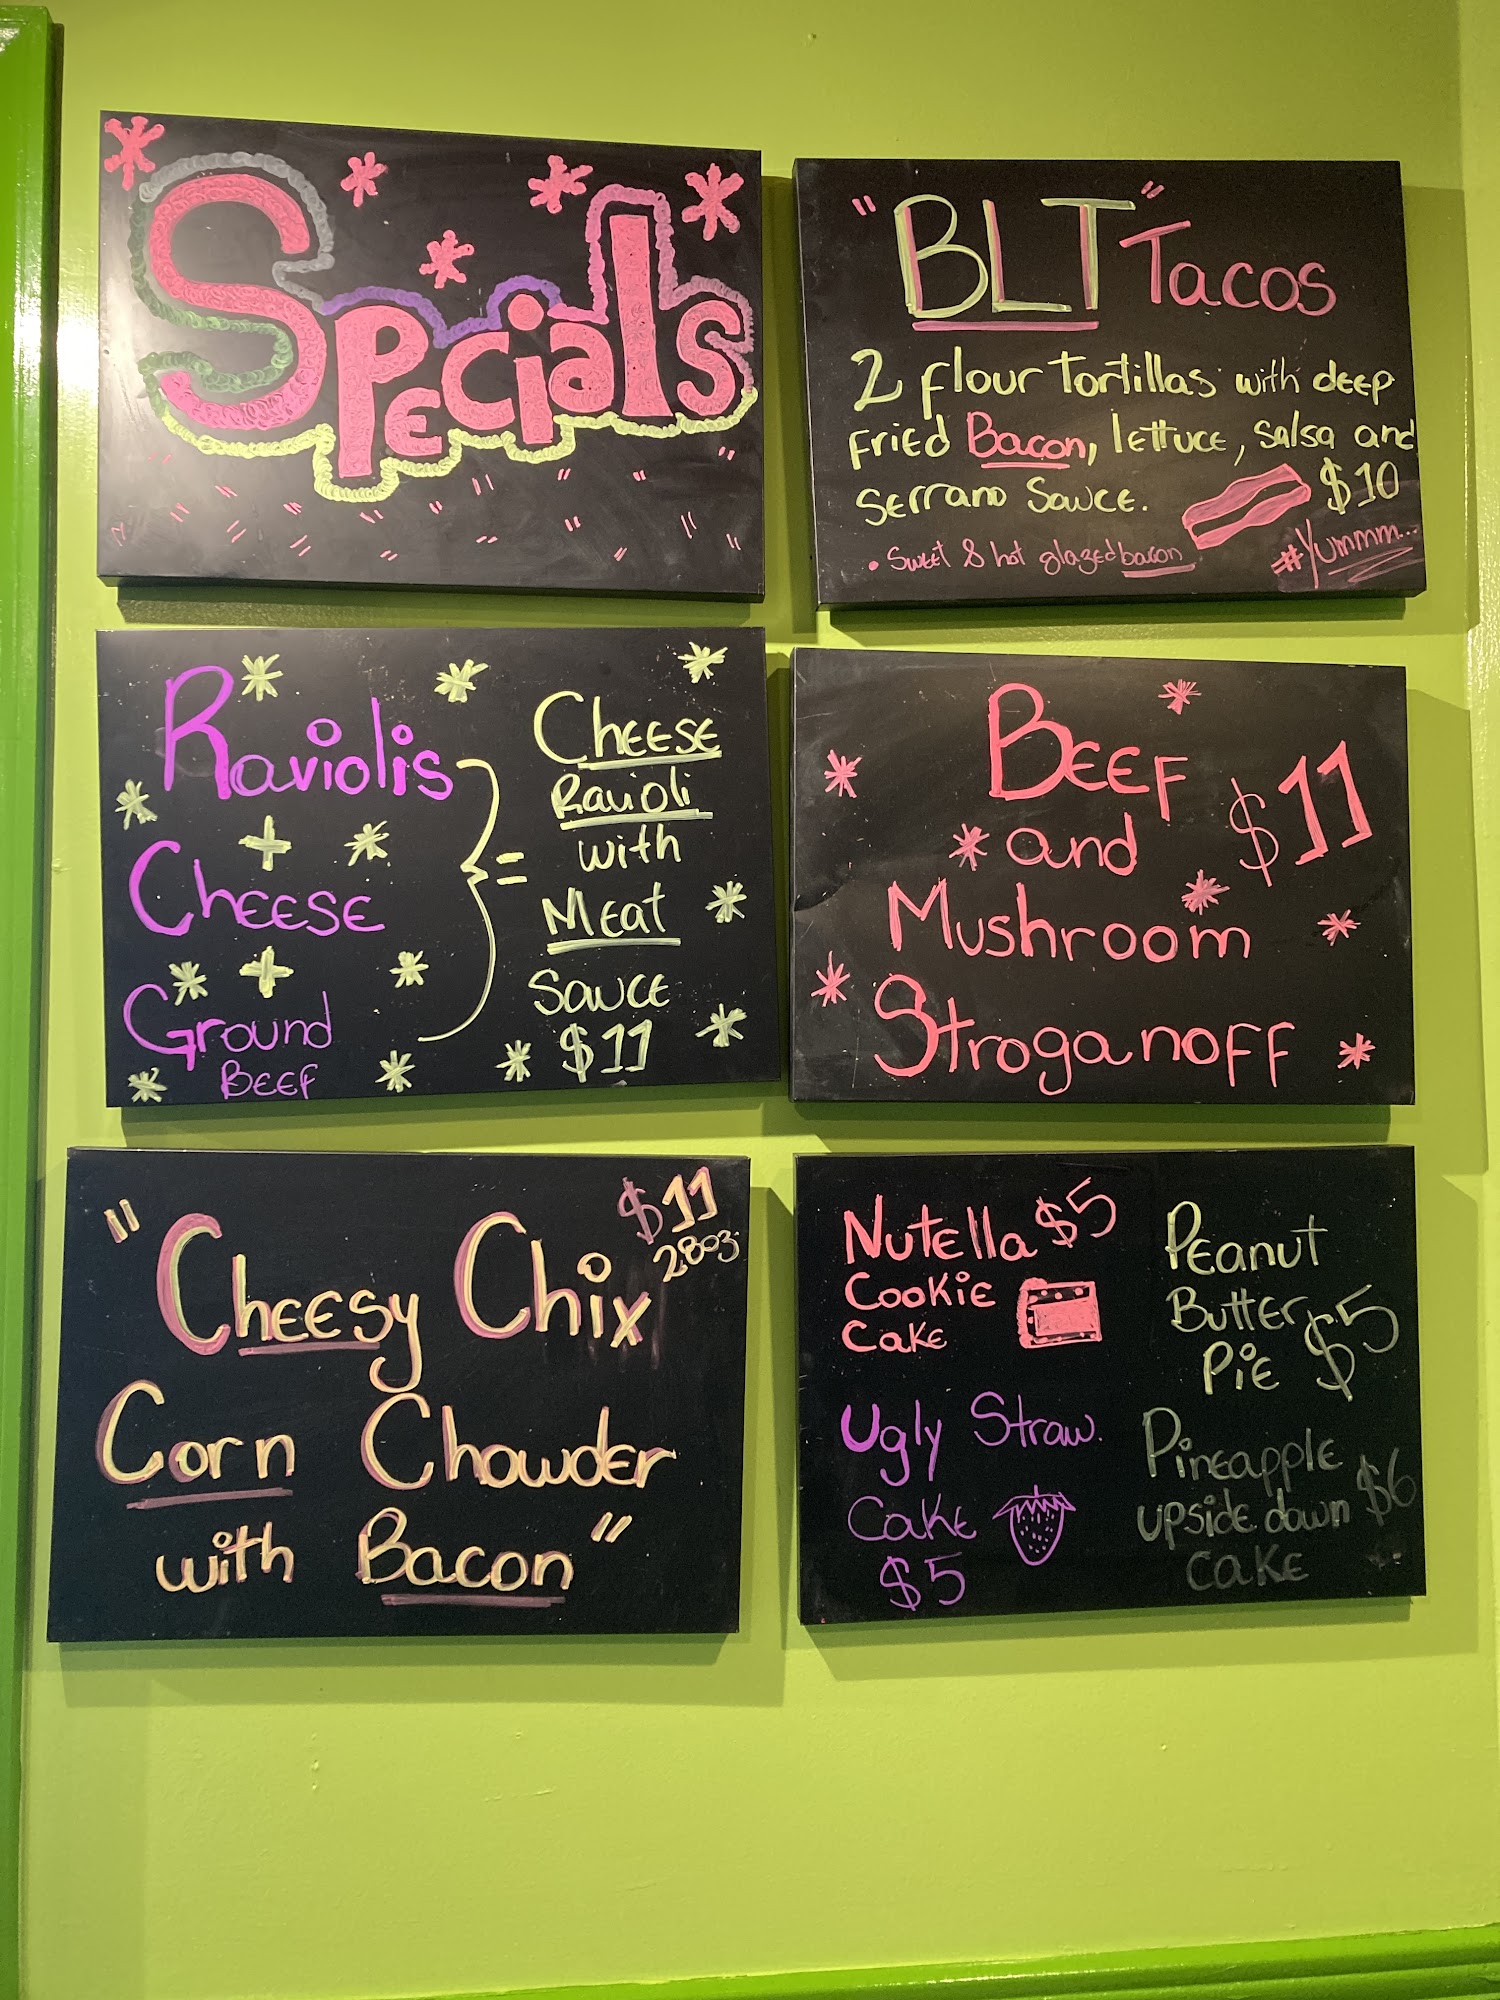 Specials
"BLT" Tacos
2 flour tortillas with deep
fried Bacon, lettuce, salsa and
serrano sauce. $10
• Sweet & hot glazed bacon #Yummm...
Raviolis
+
Cheese
+
Ground
Beef
=
Cheese
Ravioli
with
Meat
Sauce
$11
Beef
and
Mushroom
Stroganoff
$11
$11
28oz
"Cheesy Chix
Corn Chowder
with Bacon"
Nutella $5
Cookie
Cake
Peanut
Butter
Pie $5
Ugly Straw.
Cake
$5
Pineapple
upside down $6
cake